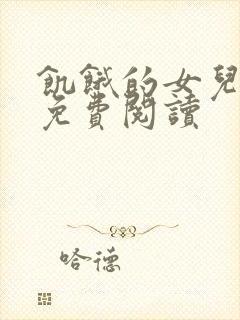 飢餓的女兒
免費閱讀
哈德